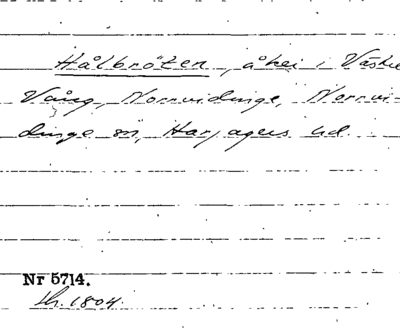 Hålbröten, åker i Västra
Vång, Norrvidinge, Norrvi-
dinge sn, Harjagers hd.
Nr 5714.
Hr. 1804.